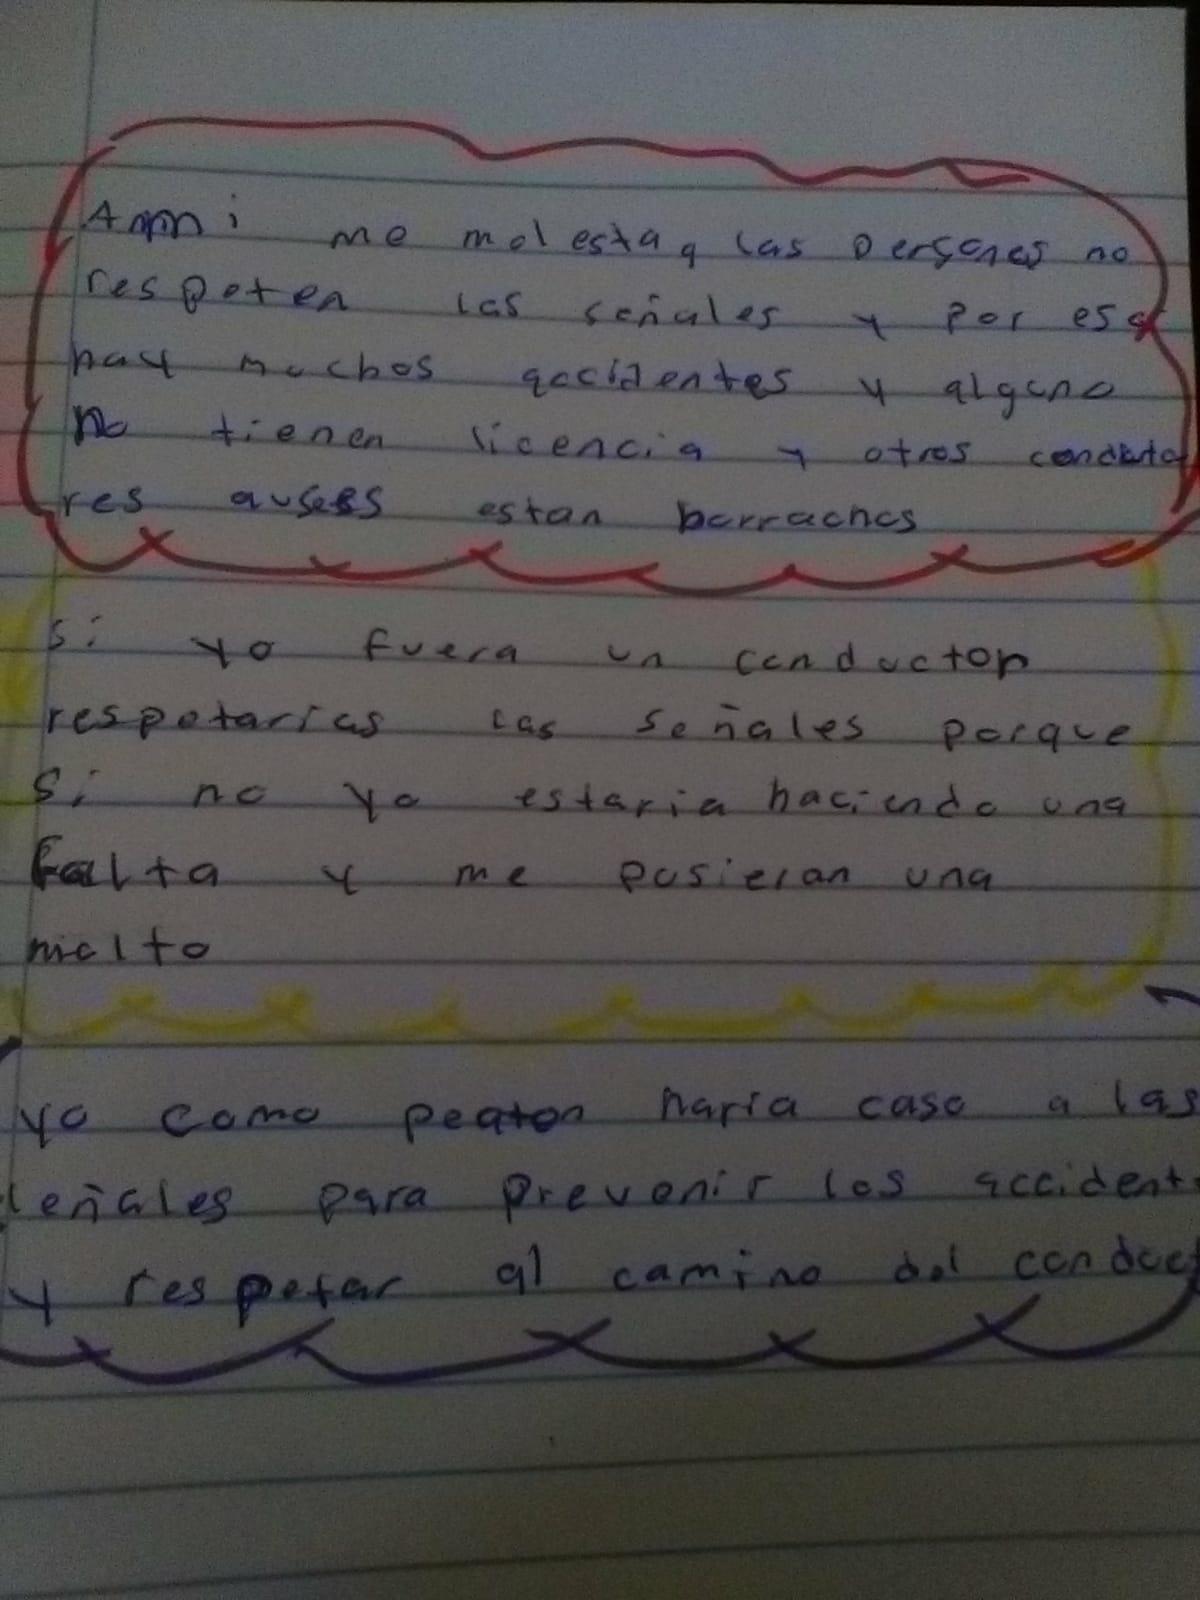 Ammi me molesta q las personas no
respeten las señales y por eso
hay muchos accidentes y alguno
no tienen licencia y otros conducto
res auses estan borrachos
Si yo fuera un conductor
respetarias las señales porque
si no yo estaria haciendo una
falta y me pusieran una
multa
yo como peaton haria caso a las
señales para prevenir los accident
y respetar al camino del conduct